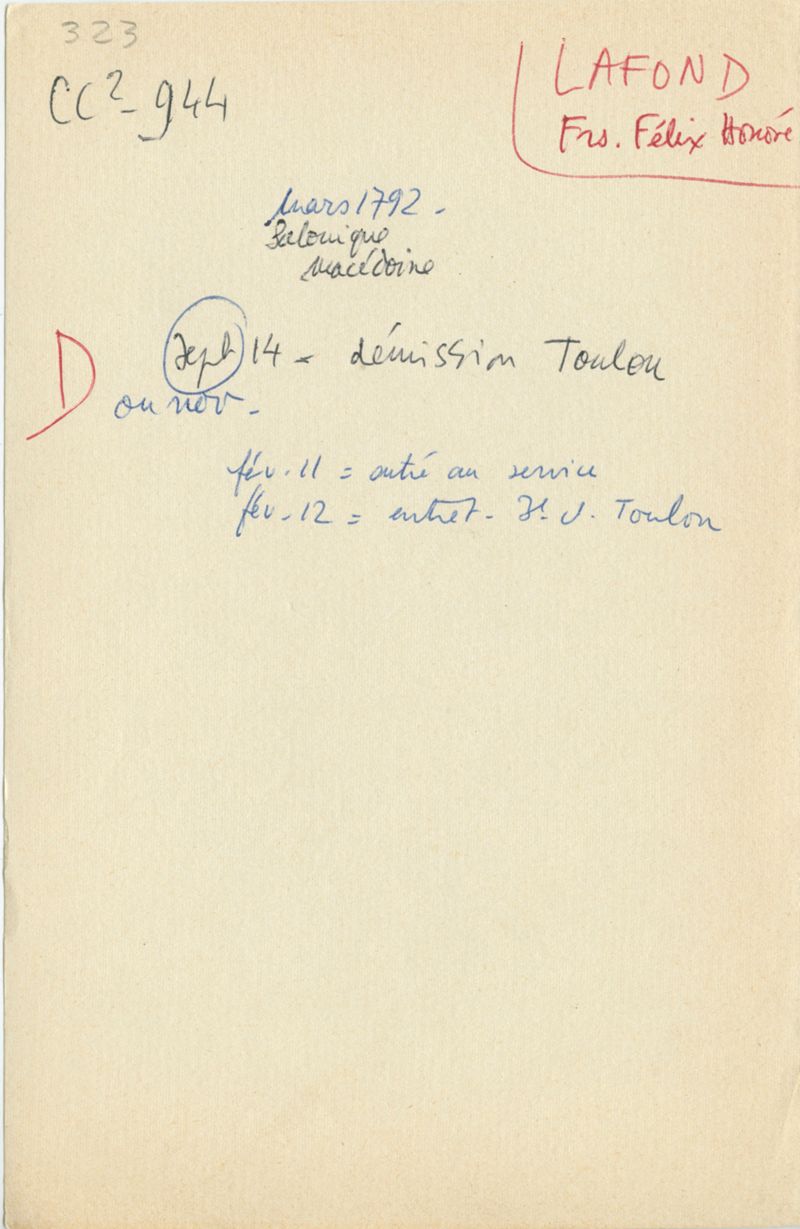 323
CC2-944
LAFOND
Frs. Félix Honoré
mars 1792 -
Salonique
Macédoine
D
Sept 14 - démission Toulon
ou nov -
fév. 11 = entré au service
fév. 12 = entret. Toulon